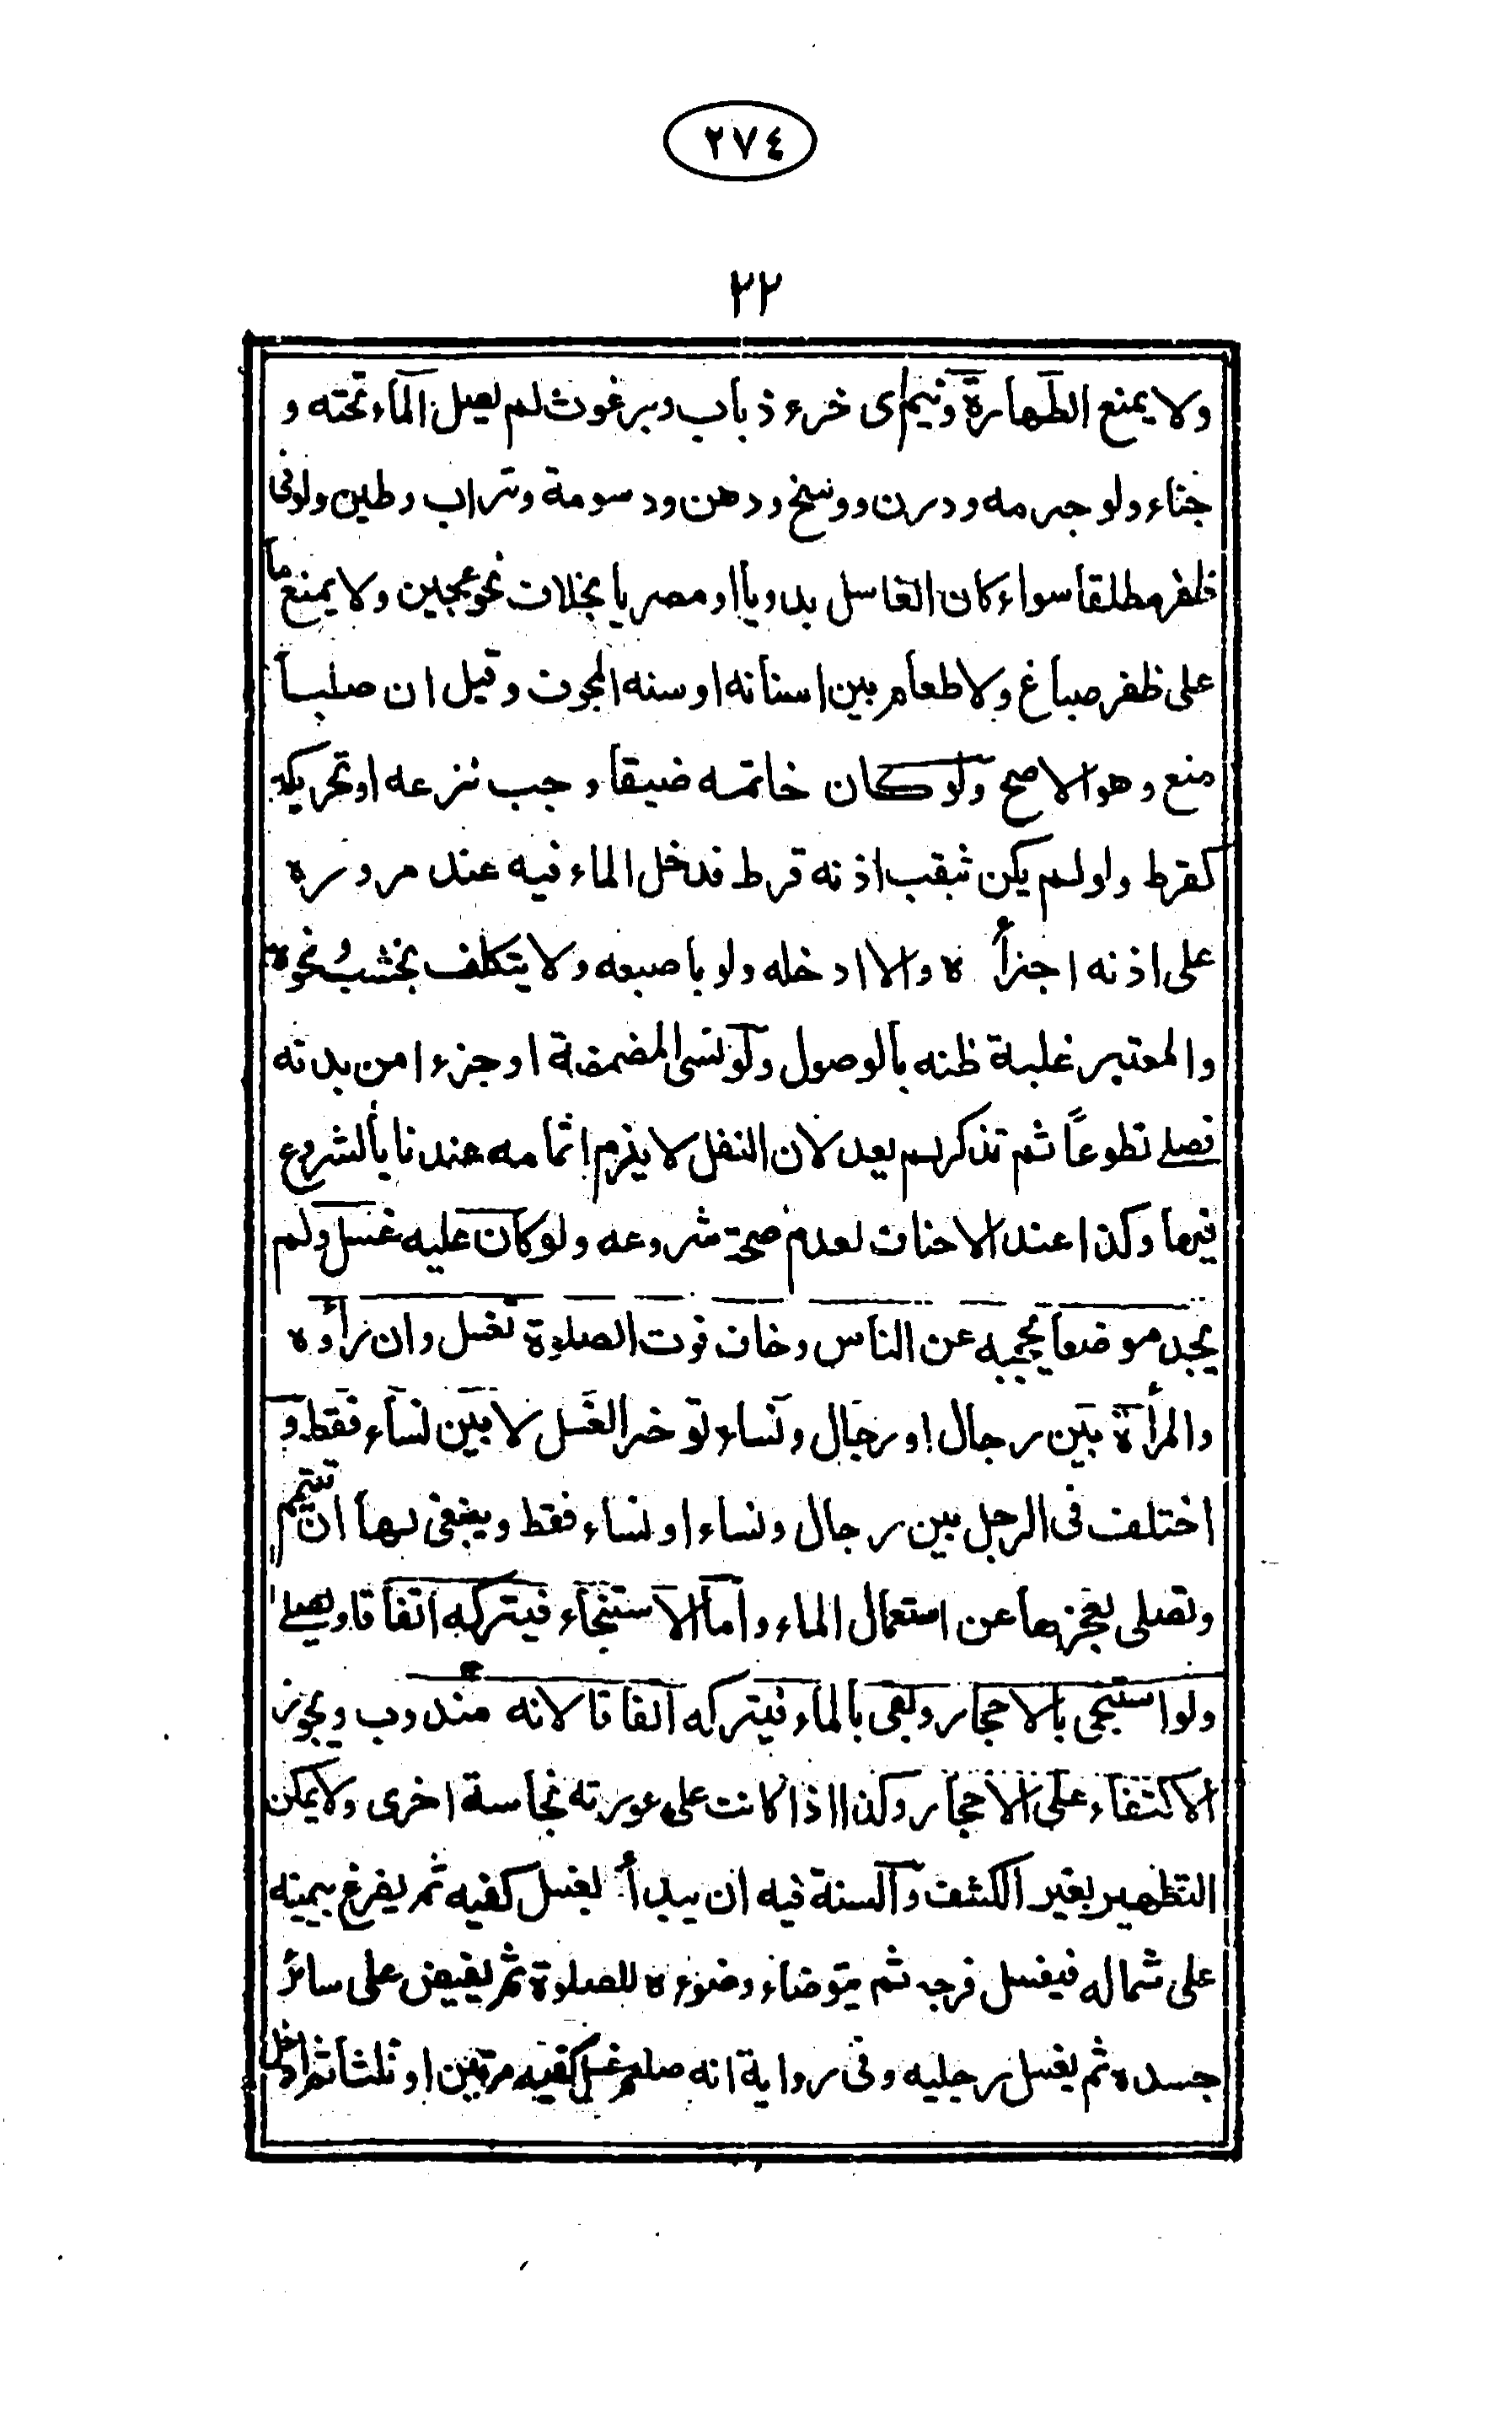 ٢٧٤
٢٢
ولا يمنع الطهارة ونيم اى خرء ذباب وبرغوث لم يصل الماء تحته و
حناء ولو جرمه ودرن ووسخ ودهن ودسومة وتراب وطين ولو فى
ظفر مطلقا سواء كان الغاسل بدويا او مصريا بخلاف نحو عجين ولا يمنع ما
على ظفر صباغ ولا طعام بين اسنانه او سنه المجوف وقيل ان صلبا
منع وهو الاصح ولو كان خاتمه ضيقا وجب نزعه او تحريكه
كقرط ولو لم يكن بثقب اذنه قرط فدخل الماء فيه عند مروره
على اذنه اجزأه والا ادخله ولو باصبعه ولا يتكلف بخشب ونحوه
والمعتبر غلبة ظنه بالوصول ولو نسى المضمضة او جزءا من بدنه
فصلے تطوعاً ثم تذكر لم يعد لان النفل لا يلزم اتمامه عندنا بالشروع
فيها وكذا عند الاحناف لعدم صحة شروعه ولو كان عليه غسل ولم
يجد موضعا يحجبه عن الناس وخاف فوت الصلوة تغسل وان رأوه
والمرأة بين رجال او رجال ونساء توخر الغسل لا بين نساء فقط و
اختلف فى الرجل بين رجال ونساء او نساء فقط وينبغى لها ان تتيمم
وتصلى لعجزها عن استعمال الماء واما الاستنجاء فيتركه اتفاقا ويصلے
ولو استنجى بالاحجار وبقى بالماء فيتركه اتفاقا لانه مندوب ويجوز
الاكتفاء على الاحجار وكذا اذا كانت على عورته نجاسة اخرى ولا يمكن
التطهير بغير الكشف والسنة فيه ان يبدأ بغسل كفيه ثم يفرغ بيمينه
على شماله فيغسل فرجه ثم يتوضاء وضوءه للصلوة ثم يفيض على سائر
جسده ثم يغسل رجليه وفى رواية انه صلعم غسل كفيه مرتين او ثلثا ثم ادخل